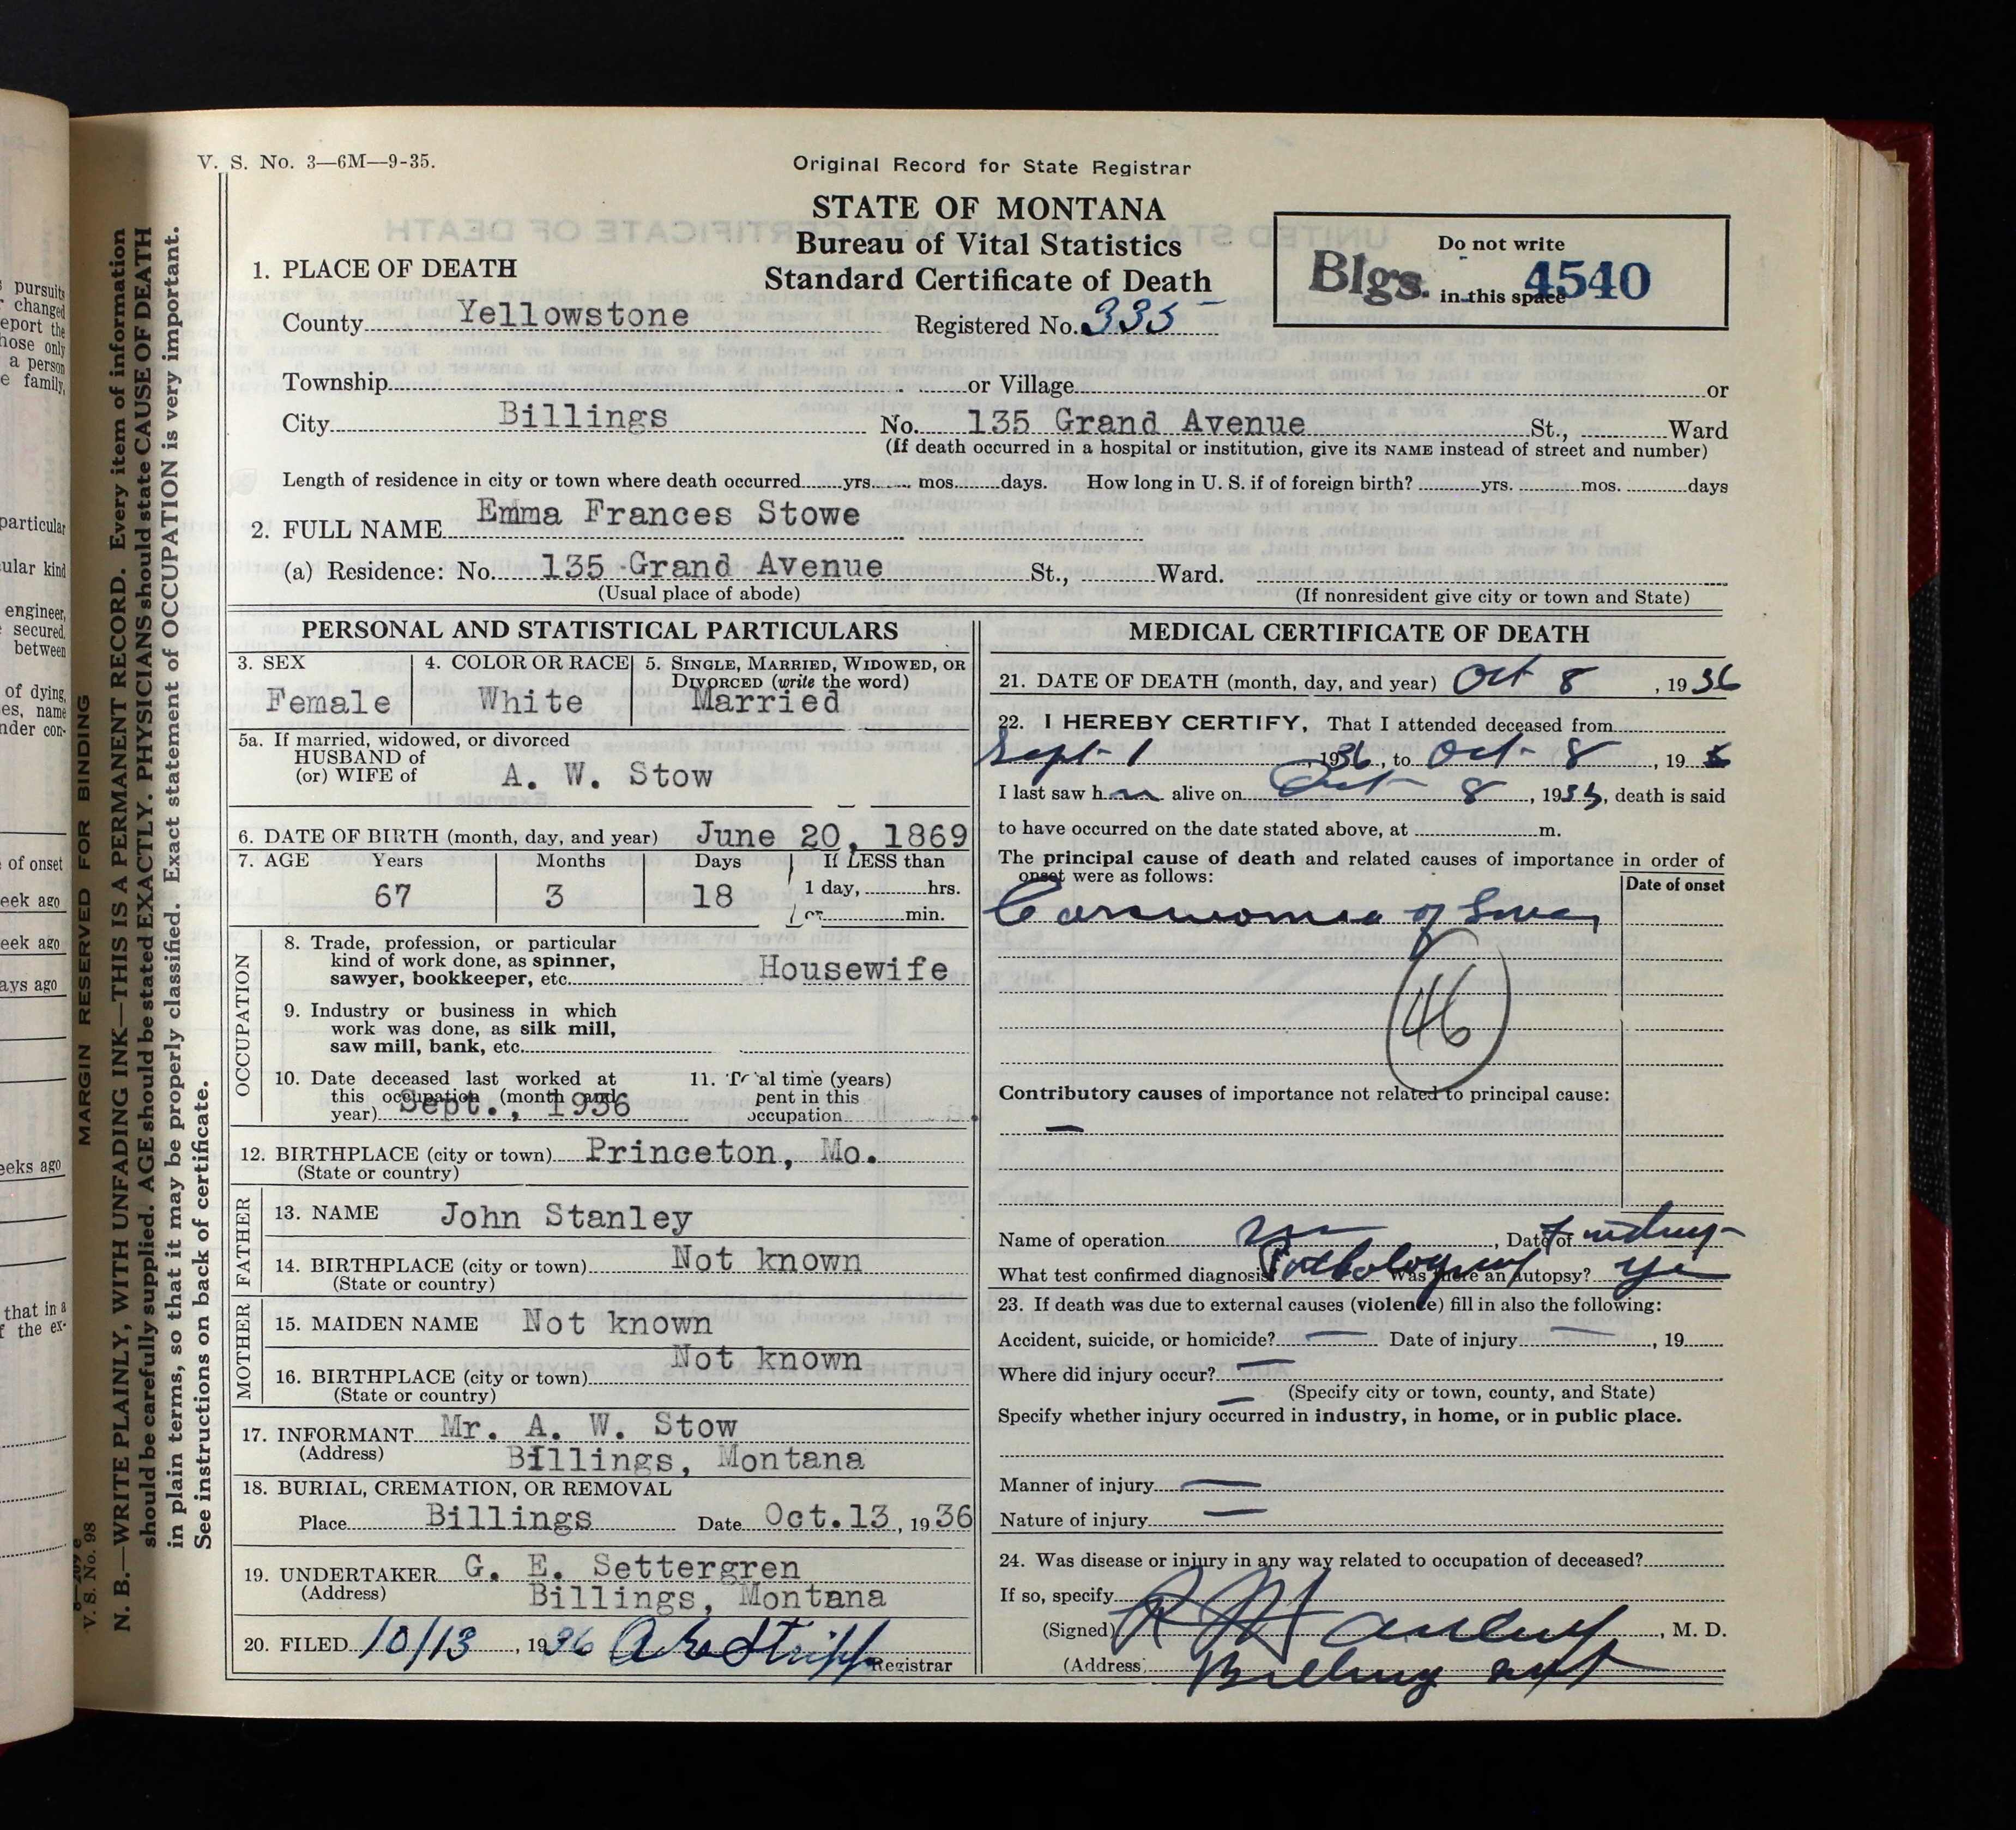 V. S. No. 3—6M—9-35.
Original Record for State Registrar
STATE OF MONTANA
Bureau of Vital Statistics
Standard Certificate of Death
Do not write
in this space
Blgs. 4540
1. PLACE OF DEATH
County Yellowstone Registered No. 335
Township or Village or
City Billings No. 135 Grand Avenue St., Ward
(If death occurred in a hospital or institution, give its NAME instead of street and number)
Length of residence in city or town where death occurred yrs. mos. days. How long in U. S. if of foreign birth? yrs. mos. days
2. FULL NAME Emma Frances Stowe
(a) Residence: No. 135 Grand Avenue St., Ward.
(Usual place of abode) (If nonresident give city or town and State)
PERSONAL AND STATISTICAL PARTICULARS
3. SEX 4. COLOR OR RACE 5. SINGLE, MARRIED, WIDOWED, OR
DIVORCED (write the word)
Female White Married
5a. If married, widowed, or divorced
HUSBAND of
(or) WIFE of A. W. Stow
6. DATE OF BIRTH (month, day, and year) June 20, 1869
7. AGE Years Months Days If LESS than
67 3 18 1 day, hrs.
or min.
OCCUPATION
8. Trade, profession, or particular
kind of work done, as spinner,
sawyer, bookkeeper, etc. Housewife
9. Industry or business in which
work was done, as silk mill,
saw mill, bank, etc.
10. Date deceased last worked at
this occupation (month and
year) Sept., 1936
11. Total time (years)
spent in this
occupation
12. BIRTHPLACE (city or town) Princeton, Mo.
(State or country)
FATHER
13. NAME John Stanley
14. BIRTHPLACE (city or town) Not known
(State or country)
MOTHER
15. MAIDEN NAME Not known
16. BIRTHPLACE (city or town) Not known
(State or country)
17. INFORMANT Mr. A. W. Stow
(Address) Billings, Montana
18. BURIAL, CREMATION, OR REMOVAL
Place Billings Date Oct.13, 1936
19. UNDERTAKER G. E. Settergren
(Address) Billings, Montana
20. FILED 10/13, 1936
Registrar
MEDICAL CERTIFICATE OF DEATH
21. DATE OF DEATH (month, day, and year) Oct 8, 1936
22. I HEREBY CERTIFY, That I attended deceased from
Sept 1 1936, to Oct 8, 19
I last saw her alive on Oct 8, 1936, death is said
to have occurred on the date stated above, at m.
The principal cause of death and related causes of importance in order of
onset were as follows:
Date of onset
Carcinoma of
46
Contributory causes of importance not related to principal cause:
—
Name of operation Date of
What test confirmed diagnosis? Pathology Was there an autopsy? Yes
23. If death was due to external causes (violence) fill in also the following:
Accident, suicide, or homicide? — Date of injury —, 19
Where did injury occur? —
(Specify city or town, county, and State)
Specify whether injury occurred in industry, in home, or in public place.
—
Manner of injury —
Nature of injury —
24. Was disease or injury in any way related to occupation of deceased?
If so, specify
(Signed) M. D.
(Address) Billings Mont
MARGIN RESERVED FOR BINDING
N. B.—WRITE PLAINLY, WITH UNFADING INK—THIS IS A PERMANENT RECORD. Every item of information
should be carefully supplied. AGE should be stated EXACTLY. PHYSICIANS should state CAUSE OF DEATH
in plain terms, so that it may be properly classified. Exact statement of OCCUPATION is very important.
See instructions on back of certificate.
V. S. No. 98
pursuits
changed
eport the
hose only
a person
e family,
particular
ular kind
engineer,
secured.
between
of dying,
es, name
nder con-
of onset
eek ago
eek ago
ays ago
eeks ago
that in a
f the ex-